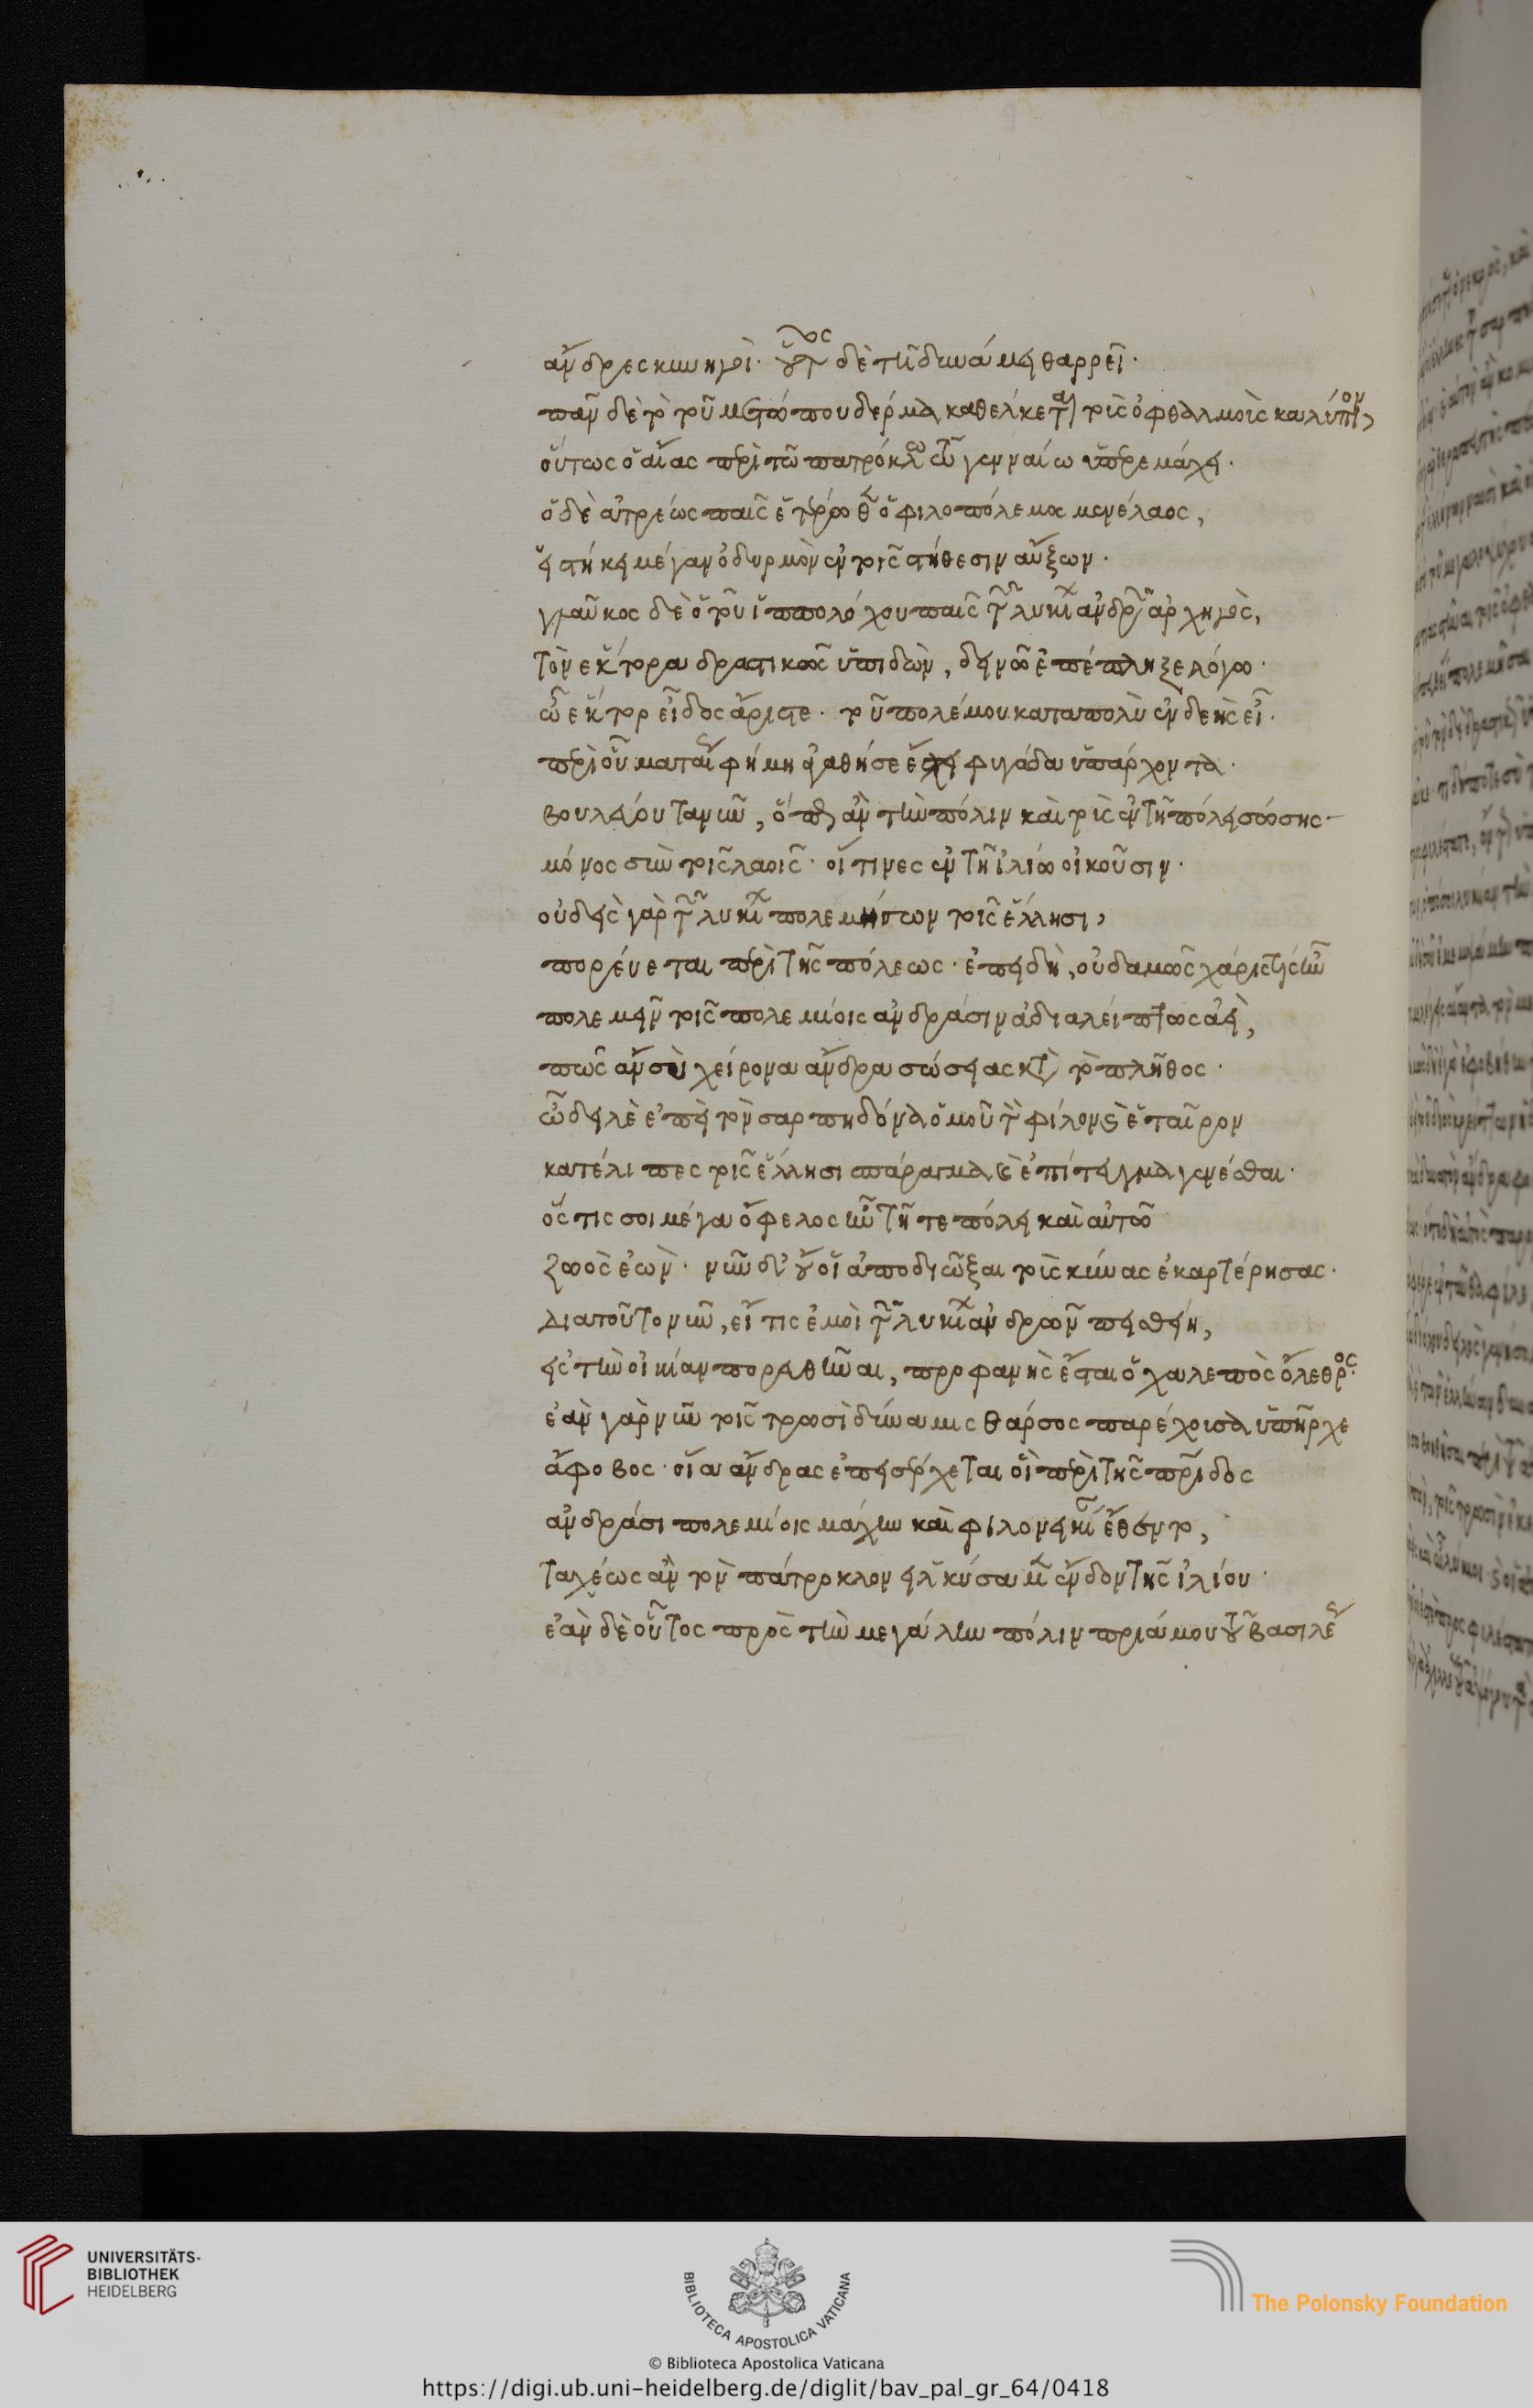 ἄνδρες κυνηγοὶ· οὗτος δὲ τῆ δυνάμει θαρρεῖ·
πᾶν δὲ τὸ τοῦ μετώπου δέρμα καθέλκεται τοὺς ὀφθαλμοὺς καλύπτον,
οὕτως ὁ αἴας περὶ τῶ πατρόκλω τῶ γενναίω ὑπερεμάχει·
ὁ δὲ ἀτρέως παῖς ἑτέρωθεν ὁ φιλοπόλεμος μενέλαος,
εἱστήκει μέγαν ὀδυρμὸν ἐν τοῖς στήθεσιν αὔξων·
γλαῦκος δὲ ὁ τοῦ ἱππολόχου παῖς τῶν λυκίων ἀνδρῶν ἀρχηγὸς,
τὸν ἕκτορα δραστικῶς ὑπιδὼν, δεινῶ ἐπέπληξε λόγω·
ὦ ἕκτορ εἶδος ἄριστε· τοῦ πολέμου καταπολὺ ἐνδεὴς εἶ·
περὶ οὗ ματαίως φήμη ἀγαθή σε ἔχει φυγάδα ὑπάρχοντα·
βουλεύου τανῦν, ὅπως ἂν τὴν πόλιν καὶ τοὺς ἐν τῆ πόλει σώσης
μόνος σὺν τοῖς λαοῖς· οἵτινες ἐν τῆ ἰλίω οἰκοῦσιν·
οὐδεὶς γὰρ τῶν λυκίων πολεμήσων τοῖς ἕλλησι,
πορεύεται περὶ τῆς πόλεως· ἐπειδὴ, οὐδαμῶς χάρις τίς ἦν
πολεμεῖν τοῖς πολεμίοις ἀνδράσιν ἀδιαλείπτως ἀεὶ,
πῶς ἂν σὺ χείρονα ἄνδρα σώσειας κατὰ τὸ πλῆθος·
ὦ δειλὲ ἐπεὶ τὸν σαρπηδόνα ὁμοῦ τὸν φίλον καὶ ἑταῖρον
κατέλιπες τοῖς ἕλλησι σπάραγμα καὶ ἐπίταγμα γενέσθαι·
ὅς τις σοι μέγα ὄφελος ἦν τῆ τε πόλει καὶ αὐτῶ
ζωὸς ἐὼν· νῦν δ' οὔ οἱ ἀποδιῶξαι τοὺς κύνας ἐκαρτέρησας·
Διατοῦτο νῦν, εἴ τις ἐμοὶ τῶν λυκίων ἀνδρῶν πεισθείη,
εἰς τὴν οἰκίαν πορευθῆναι, προφανὴς ἔσται ὁ χαλεπὸς ὄλεθρος·
ἐὰν γὰρ νῦν τοῖς τρωσὶ δύναμις θάρσος παρέχουσα ὑπῆρχε
ἄφοβος· οἵα ἄνδρας ἐπεισέρχεται οἳ περὶ τῆς πατρίδος
ἀνδράσι πολεμίοις μάχην καὶ φιλονεικίαν ἔθεντο,
ταχέως ἂν τὸν πάτροκλον εἱλκύσαμεν ἔνδον τῆς ἰλίου·
ἐὰν δὲ οὗτος πρὸς τὴν μεγάλην πόλιν πριάμου τοῦ βασιλέως
UNIVERSITÄTS-
BIBLIOTHEK
HEIDELBERG
BIBLIOTECA APOSTOLICA VATICANA
The Polonsky Foundation
© Biblioteca Apostolica Vaticana
https://digi.ub.uni-heidelberg.de/diglit/bav_pal_gr_64/0418